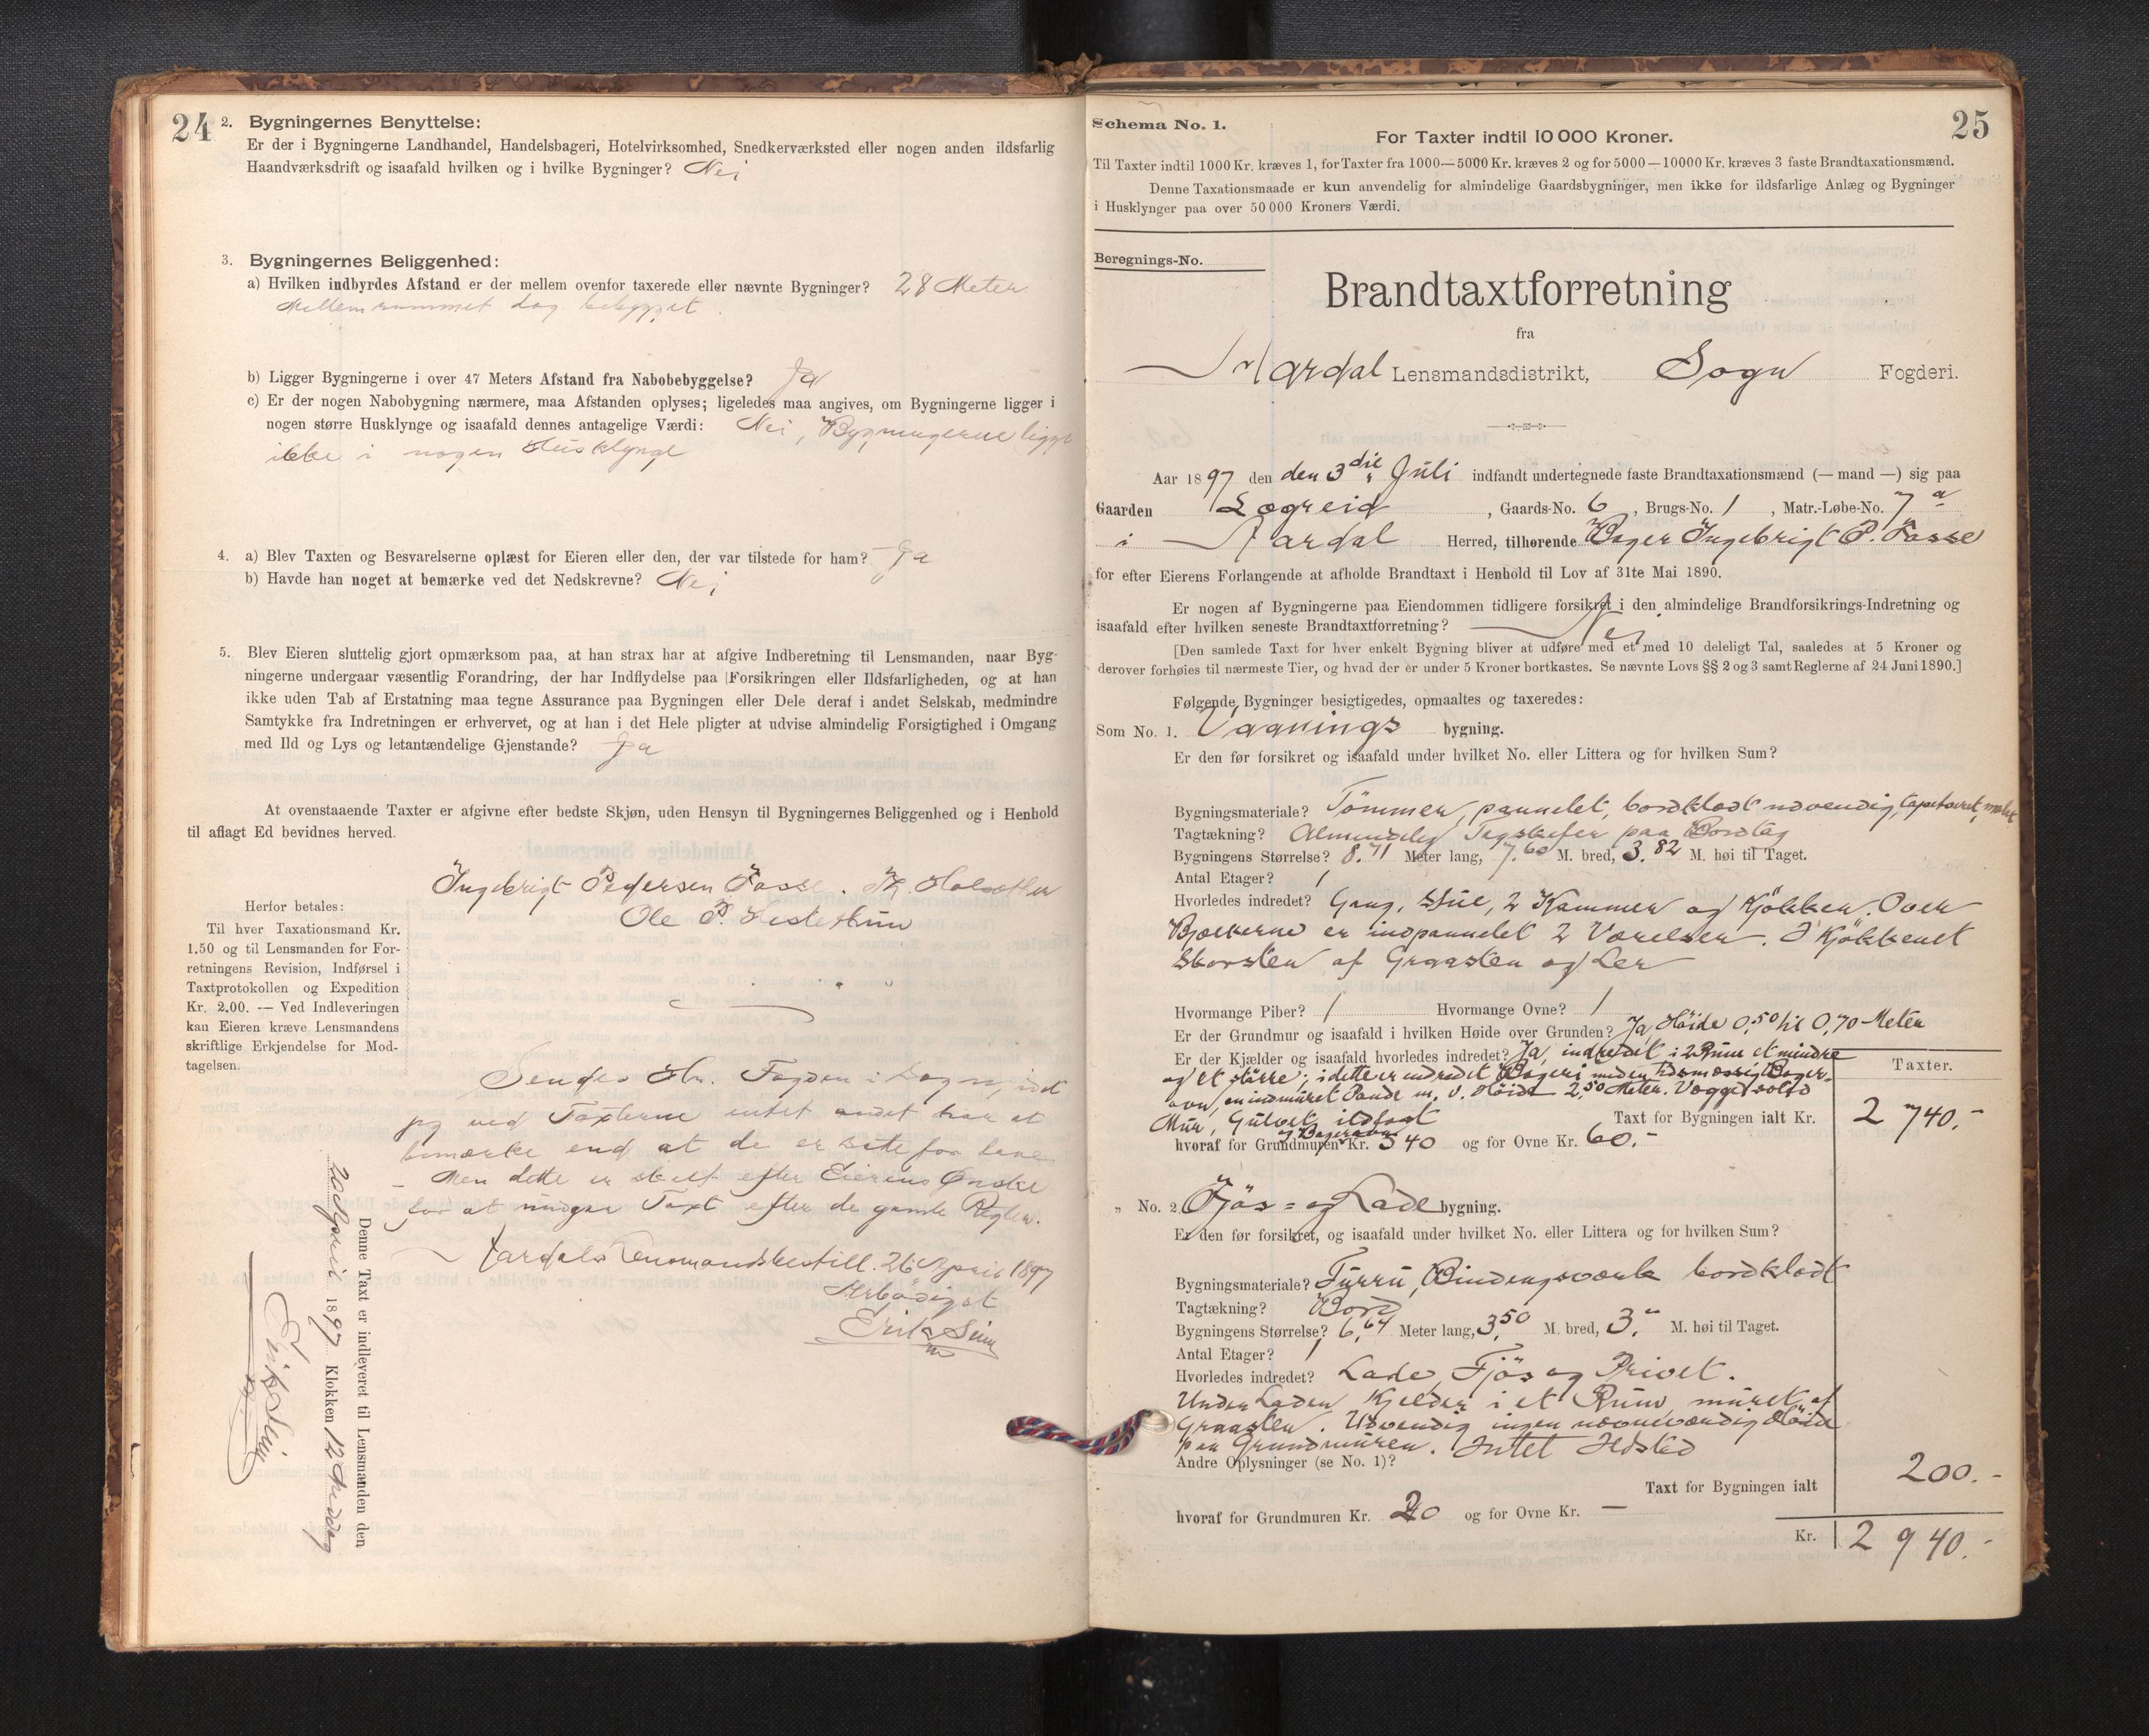 24
2. Bygningernes Benyttelse:
Er der i Bygningerne Landhandel, Handelsbageri, Hotelvirksomhed, Snedkerværksted eller nogen anden ildsfarlig
Haandværksdrift og isaafald hvilken og i hvilke Bygninger? Nei
3. Bygningernes Beliggenhed:
a) Hvilken indbyrdes Afstand er der mellem ovenfor taxerede eller nævnte Bygninger? 28 Meter
Mellemrummet dog bebygget.
b) Ligger Bygningerne i over 47 Meters Afstand fra Nabobebyggelse? Ja
c) Er der nogen Nabobygning nærmere, maa Afstanden oplyses; ligeledes maa angives, om Bygningerne ligger i
nogen større Husklynge og isaafald dennes antagelige Værdi: Nei, Bygningerne ligger
ikke i nogen Husklynge
4. a) Blev Taxten og Besvarelserne oplæst for Eieren eller den, der var tilstede for ham? Ja
b) Havde han noget at bemærke ved det Nedskrevne? Nei
5. Blev Eieren sluttelig gjort opmærksom paa, at han strax har at afgive Indberetning til Lensmanden, naar Byg-
ningerne undergaar væsentlig Forandring, der har Indflydelse paa Forsikringen eller Ildsfarligheden, og at han
ikke uden Tab af Erstatning maa tegne Assurance paa Bygningen eller Dele deraf i andet Selskab, medmindre
Samtykke fra Indretningen er erhvervet, og at han i det Hele pligter at udvise almindelig Forsigtighed i Omgang
med Ild og Lys og letantændelige Gjenstande? Ja
At ovenstaaende Taxter er afgivne efter bedste Skjøn, uden Hensyn til Bygningernes Beliggenhed og i Henhold
til aflagt Ed bevidnes herved.
Ingebrigt Pedersen Fosse. Th. Holsæther
Ole P. Hestethun
Herfor betales:
Til hver Taxationsmand Kr.
1.50 og til Lensmanden for For-
retningens Revision, Indførsel i
Taxtprotokollen og Expedition
Kr. 2.00. — Ved Indleveringen
kan Eieren kræve Lensmandens
skriftlige Erkjendelse for Mod-
tagelsen.
Sendes Hr. Fogden i Sogn, idet
jeg ved Taxterne intet andet har at
bemærke end at de er satte for lave
- Men dette er skeet efter Eierens Ønske
for at undgaa Taxt efter de gamle Regler.
Aardals Lensmandsbestill. 26 April 1897
Ærbødigst
Erik Seim
Denne Taxt er indleveret til Lensmanden den
20 April 1897 Klokken 12 Middag
Erik Seim
25
Schema No. 1.
For Taxter indtil 10 000 Kroner.
Til Taxter indtil 1000 Kr. kræves 1, for Taxter fra 1000—5000 Kr. kræves 2 og for 5000—10000 Kr. kræves 3 faste Brandtaxationsmænd.
Denne Taxationsmaade er kun anvendelig for almindelige Gaardsbygninger, men ikke for ildsfarlige Anlæg og Bygninger
i Husklynger paa over 50 000 Kroners Værdi.
Beregnings-No.
Brandtaxtforretning
fra
Aardal Lensmandsdistrikt, Sogn Fogderi.
Aar 1897 den den 3die Juli indfandt undertegnede faste Brandtaxationsmænd (— mand —) sig paa
Gaarden Lægreid, Gaards-No. 6, Brugs-No. 1, Matr.-Løbe-No. 7a
i Aardal Herred, tilhørende Bager Ingebrigt P. Fosse
for efter Eierens Forlangende at afholde Brandtaxt i Henhold til Lov af 31te Mai 1890.
Er nogen af Bygningerne paa Eiendommen tidligere forsikret i den almindelige Brandforsikrings-Indretning og
isaafald efter hvilken seneste Brandtaxtforretning? Nei
[Den samlede Taxt for hver enkelt Bygning bliver at udføre med et med 10 deleligt Tal, saaledes at 5 Kroner og
derover forhøies til nærmeste Tier, og hvad der er under 5 Kroner bortkastes. Se nævnte Lovs §§ 2 og 3 samt Reglerne af 24 Juni 1890.]
Følgende Bygninger besigtigedes, opmaaltes og taxeredes:
Som No. 1. Vaanings bygning.
Er den før forsikret og isaafald under hvilket No. eller Littera og for hvilken Sum?
Bygningsmateriale? Tømmer, pannelet, bordklædt udvendig, tapetseret, malet
Tagtækning? Almindelig Tagskifer paa Bordtag
Bygningens Størrelse? 8.71 Meter lang, 7.60 M. bred, 3.82 M. høi til Taget.
Antal Etager? 1
Hvorledes indredet? Gang, Stue, 2 Kammer og Kjøkken. Over
Bjælkerne er indpannelet 2 Værelser. I Kjøkkenet
Skorsten af Graasten og Ler
Hvormange Piber? 1 Hvormange Ovne? 1
Er der Grundmur og isaafald i hvilken Høide over Grunden? Ja, Høide 0,50 til 0,70 Meter
Er der Kjælder og isaafald hvorledes indredet? Ja, indredet i 2 Rum et mindre
og et større; i dette er indredet Bageri med en tidsmæssig Bager-
ovn, en indmuret Pande m. v. Høide 2,50 Meter. Vægge solid
Mur, Gulvet ildfast
Taxter.
Taxt for Bygningen ialt Kr. 2 740.-
hvoraf for Grundmuren og Bagerovn Kr. 540 og for Ovne Kr. 60.-
„ No. 2. Fjøs- og Lade bygning.
Er den før forsikret, og isaafald under hvilket No. eller Littera og for hvilken Sum?
Bygningsmateriale? Furru, Bindingsværk bordklædt
Tagtækning? Bord
Bygningens Størrelse? 6,64 Meter lang, 3,50 M. bred, 3.- M. høi til Taget.
Antal Etager? 1
Hvorledes indredet? Lade, Fjøs og Privet.
Under Laden Kjelder i et Rum, muret af
Graasten. Udvendig ingen nævneværdig Høide
paa Grundmuren. Intet Ildsted
Andre Oplysninger (se No. 1)?
Taxt for Bygningen ialt 200.-
hvoraf for Grundmuren Kr. 20 og for Ovne Kr. —
Kr. 2 940.-